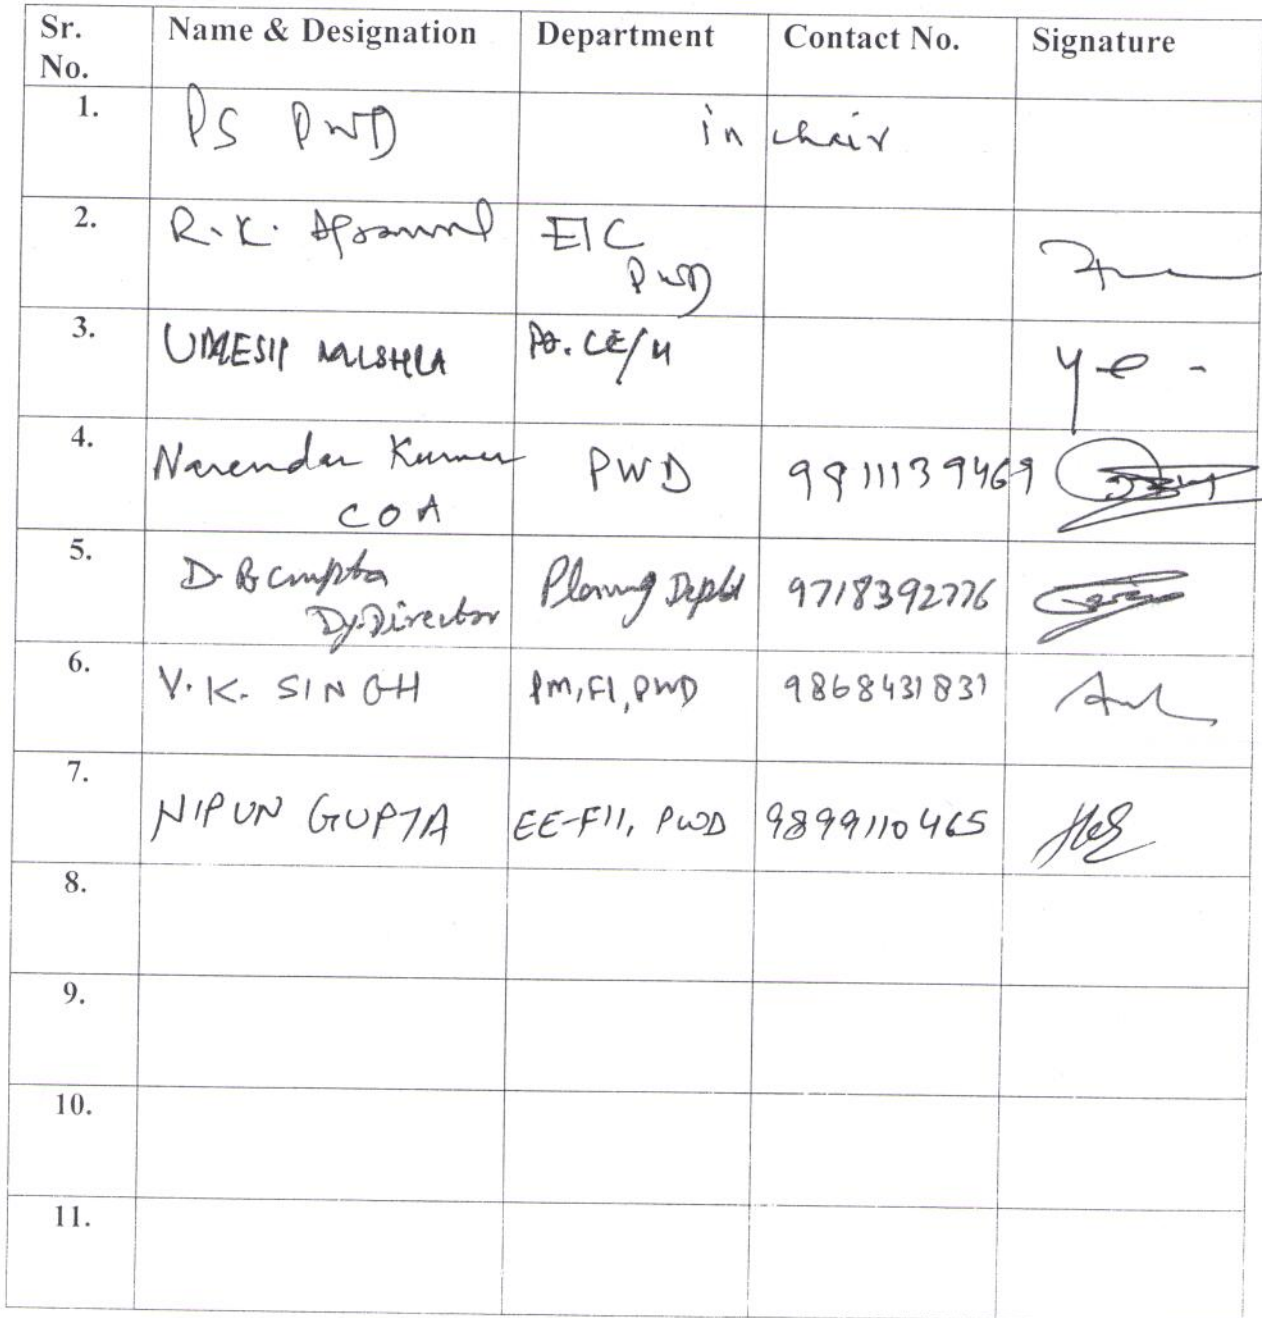 Sr. No. Name & Designation Department Contact No. Signature
1. PS PWD in chair
2. R.K. Agrawal EIC PWD
3. UMESH MISHRA CE/M
4. Narendar Kumar COA PWD 9911139469
5. D. B Gupta Dy. Director Planning Deptt 9718392776
6. V.K. SINGH PM, F1, PWD 9868431831
7. NIPUN GUPTA EE-F11, PWD 9899110465
8.
9.
10.
11.